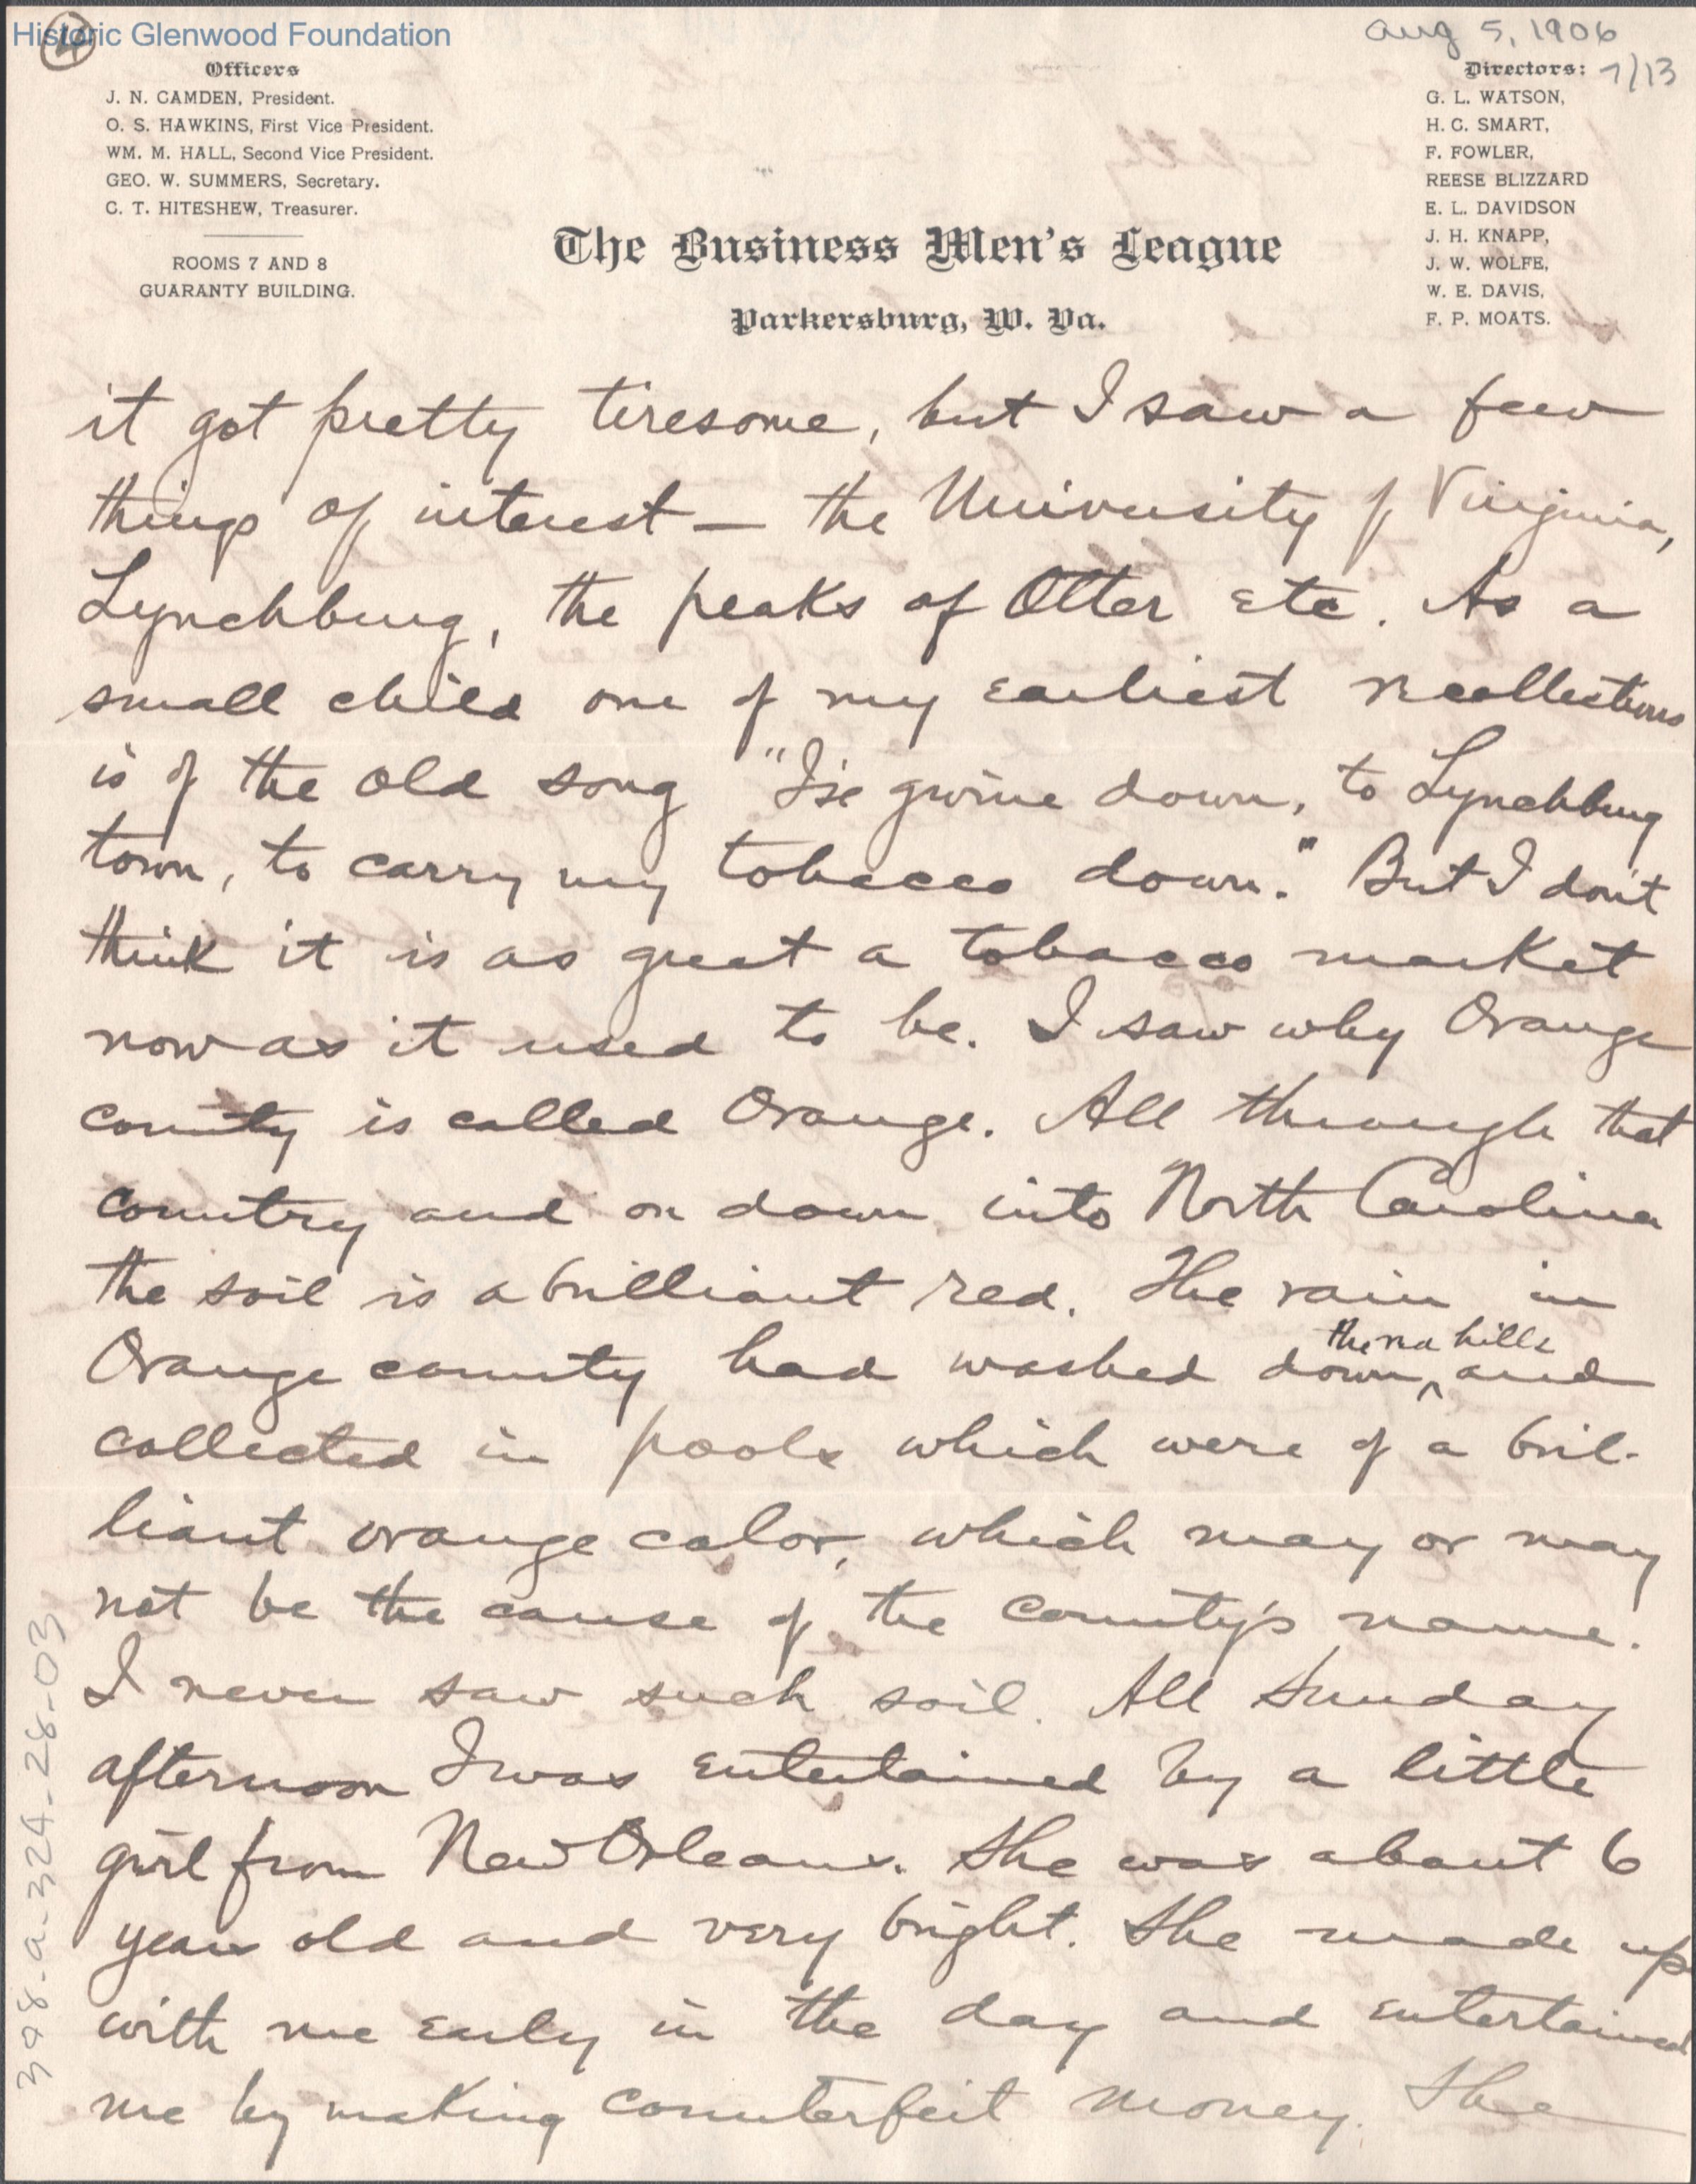 Historic Glenwood Foundation
4
Aug 5, 1906
7/13
Officers
J. N. CAMDEN, President.
O. S. HAWKINS, First Vice President.
WM. M. HALL, Second Vice President.
GEO. W. SUMMERS, Secretary.
C. T. HITESHEW, Treasurer.
ROOMS 7 AND 8
GUARANTY BUILDING.
Directors:
G. L. WATSON,
H. C. SMART,
F. FOWLER,
REESE BLIZZARD
E. L. DAVIDSON
J. H. KNAPP,
J. W. WOLFE,
W. E. DAVIS,
F. P. MOATS.
The Business Men's League
Parkersburg, W. Va.
it got pretty tiresome, but I saw a few
things of interest — the University of Virginia,
Lynchburg, the peaks of Otter etc. As a
small child one of my earliest recollections
is of the old song "I'se gwine down, to Lynchburg
town, to carry my tobacco down." But I don't
think it is as great a tobacco market
now as it used to be. I saw why Orange
county is called Orange. All through that
country and on down into North Carolina
the soil is a brilliant red. The rain in
Orange county had washed down ^ the red hills and
collected in pools which were of a bril-
liant orange color, which may or may
not be the cause of the county's name.
I never saw such soil. All Sunday
afternoon I was entertained by a little
girl from New Orleans. She was about 6
years old and very bright. She made up
with me early in the day and entertained
me by making counterfeit money. She
398-a-324-28-03